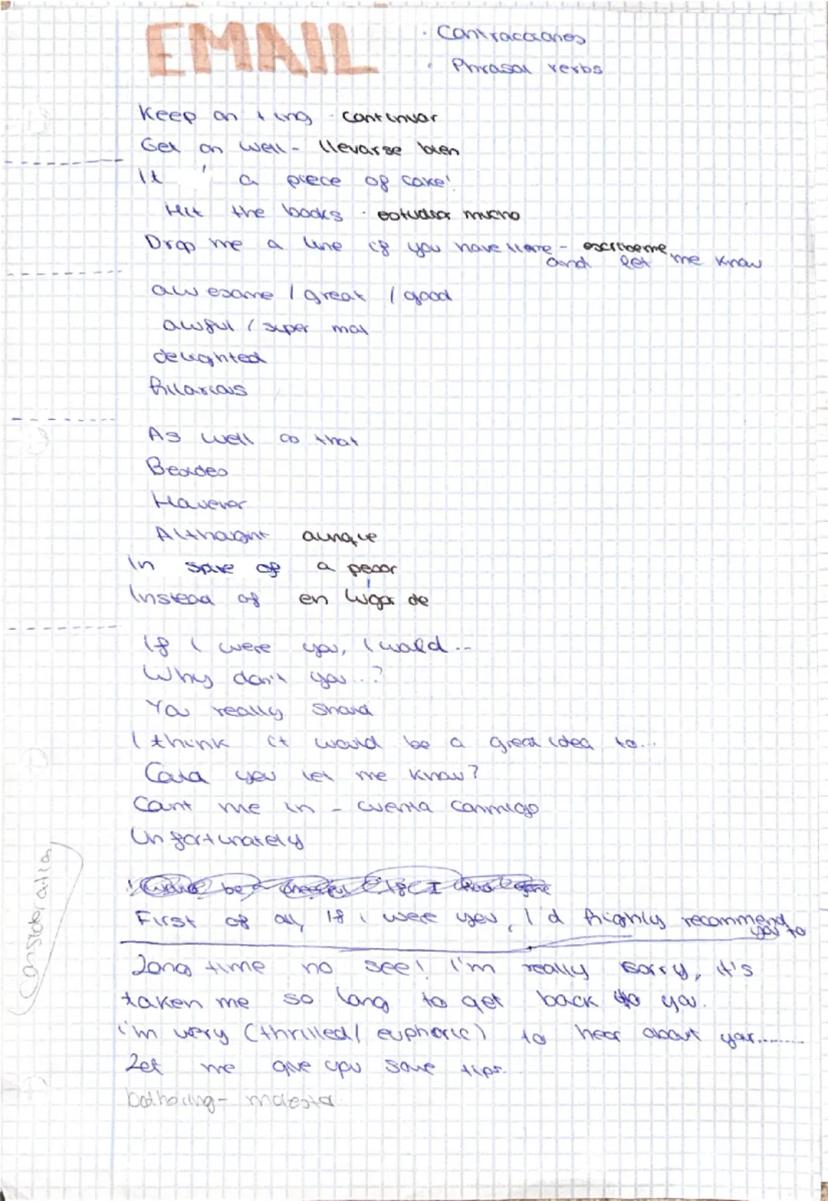 EMAIL
· Contracciones
· Phrasal verbs
Keep on + ing · continuar
Get on well - llevarse bien
It ' a piece of cake!
Hit the books · estudiar mucho
Drop me a line if you have time - escribeme
and let me know
awesome / great / good
awful / super mal
delighted
hilarious
As well as that
Besides
However
Althought aunque
In spite of a pesar
Instead of en lugar de
If I were you, I would...
Why don't you...?
You really should
I think it would be a great idea to...
Could you let me know?
Count me in - cuenta conmigo
Unfortunately
Consideration
First of all, If i were you, I'd highly recommend
you to
Long time no see! I'm really sorry, it's
taken me so long to get back to you.
i'm very (thrilled/ euphoric) to hear about your........
Let me give you some tips.
bothering - molestar